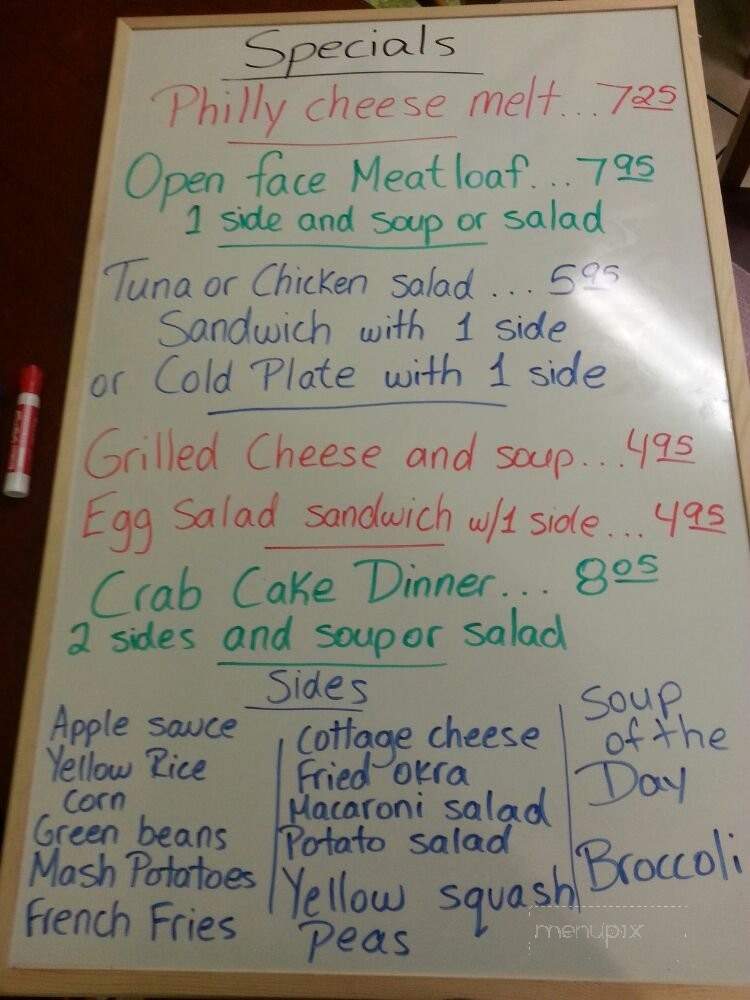 Specials
Philly cheese melt...7 25
Open face Meatloaf...7 95
1 side and soup or salad
Tuna or Chicken salad ... 5 95
Sandwich with 1 side
or Cold Plate with 1 side
Grilled Cheese and soup...4 95
Egg Salad sandwich w/1 side...4 95
Crab Cake Dinner... 8 05
2 sides and soup or salad
Sides
Apple sauce
Yellow Rice
Corn
Green beans
Mash Potatoes
French Fries
Cottage cheese
Fried okra
Macaroni salad
Potato salad
Yellow squash
Peas
Soup
of the
Day
Broccoli
menupix